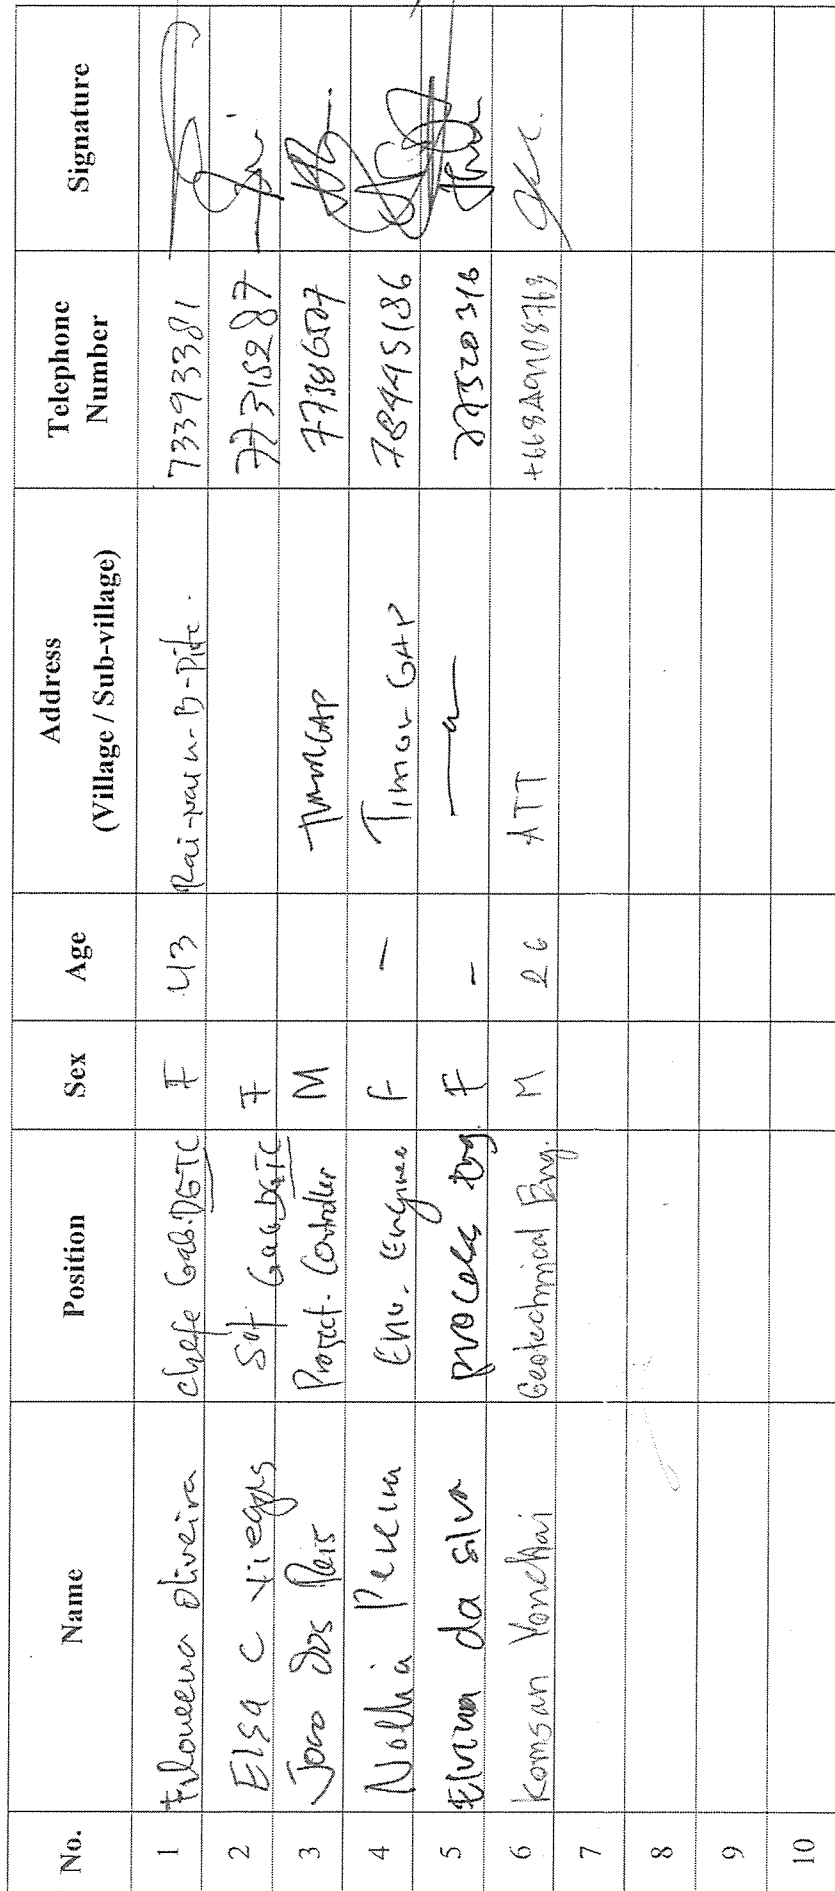 No. Name Position Sex Age Address (Village / Sub-village) Telephone Number Signature
1 Filomena Oliveira chefe Gab.DGTC F 43 73393381
2 ELSA C Viegas Gab DGTC F 77315287
3 Joao dos Reis Project. Controller M TIMOR GAP
4 Pereira Env. Engineer F - Timor GAP 78445186
5 Elvina da silva process Eng. F -
6 Komsan Yonchai Geotechnical Eng. M 26 ATT
7
8
9
10